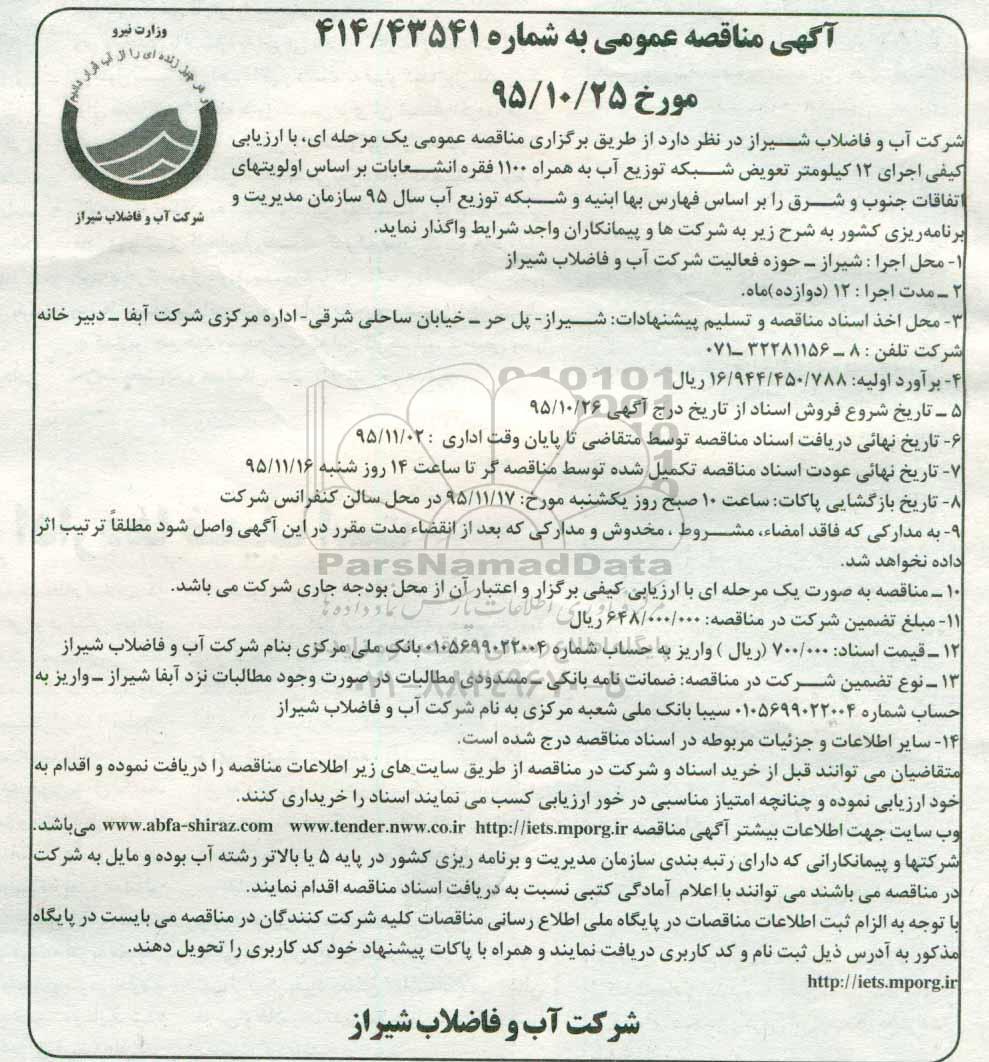 آگهی مناقصه عمومی به شماره ۴۱۴/۴۳۵۴۱
مورخ ۹۵/۱۰/۲۵
وزارت نیرو
و هر چیز زنده ای را از آب قرار دادیم
شرکت آب و فاضلاب شیراز
شرکت آب و فاضلاب شیراز در نظر دارد از طریق برگزاری مناقصه عمومی یک مرحله ای، با ارزیابی
کیفی اجرای ۱۲ کیلومتر تعویض شبکه توزیع آب به همراه ۱۱۰۰ فقره انشعابات بر اساس اولویتهای
اتفاقات جنوب و شرق را بر اساس فهارس بها ابنیه و شبکه توزیع آب سال ۹۵ سازمان مدیریت و
برنامه‌ریزی کشور به شرح زیر به شرکت ها و پیمانکاران واجد شرایط واگذار نماید.
۱- محل اجرا : شیراز ـ حوزه فعالیت شرکت آب و فاضلاب شیراز
۲ ـ مدت اجرا : ۱۲ (دوازده)ماه.
۳- محل اخذ اسناد مناقصه و تسلیم پیشنهادات: شیراز- پل حر ـ خیابان ساحلی شرقی- اداره مرکزی شرکت آبفا ـ دبیر خانه
شرکت تلفن : ۸ ـ ۳۲۲۸۱۱۵۶ ـ۰۷۱
۴- برآورد اولیه: ۱۶/۹۴۴/۴۵۰/۷۸۸ ریال
۵ ـ تاریخ شروع فروش اسناد از تاریخ درج آگهی ۹۵/۱۰/۲۶
۶- تاریخ نهائی دریافت اسناد مناقصه توسط متقاضی تا پایان وقت اداری : ۹۵/۱۱/۰۲
۷- تاریخ نهائی عودت اسناد مناقصه تکمیل شده توسط مناقصه گر تا ساعت ۱۴ روز شنبه ۹۵/۱۱/۱۶
۸- تاریخ بازگشایی پاکات: ساعت ۱۰ صبح روز یکشنبه مورخ: ۹۵/۱۱/۱۷ در محل سالن کنفرانس شرکت
۹- به مدارکی که فاقد امضاء، مشروط ، مخدوش و مدارکی که بعد از انقضاء مدت مقرر در این آگهی واصل شود مطلقاً ترتیب اثر
داده نخواهد شد.
۱۰ ـ مناقصه به صورت یک مرحله ای با ارزیابی کیفی برگزار و اعتبار آن از محل بودجه جاری شرکت می باشد.
۱۱- مبلغ تضمین شرکت در مناقصه: ۶۴۸/۰۰۰/۰۰۰ ریال
۱۲ ـ قیمت اسناد: ۷۰۰/۰۰۰ (ریال ) واریز به حساب شماره ۰۱۰۵۶۹۹۰۲۲۰۰۴ بانک ملی مرکزی بنام شرکت آب و فاضلاب شیراز
۱۳ ـ نوع تضمین شرکت در مناقصه: ضمانت نامه بانکی ـ مسدودی مطالبات در صورت وجود مطالبات نزد آبفا شیراز ـ واریز به
حساب شماره ۰۱۰۵۶۹۹۰۲۲۰۰۴ سیبا بانک ملی شعبه مرکزی به نام شرکت آب و فاضلاب شیراز
۱۴- سایر اطلاعات و جزئیات مربوطه در اسناد مناقصه درج شده است.
متقاضیان می توانند قبل از خرید اسناد و شرکت در مناقصه از طریق سایت های زیر اطلاعات مناقصه را دریافت نموده و اقدام به
خود ارزیابی نموده و چنانچه امتیاز مناسبی در خور ارزیابی کسب می نمایند اسناد را خریداری کنند.
وب سایت جهت اطلاعات بیشتر آگهی مناقصه www.abfa-shiraz.com www.tender.nww.co.ir http://iets.mporg.ir می‌باشد.
شرکتها و پیمانکارانی که دارای رتبه بندی سازمان مدیریت و برنامه ریزی کشور در پایه ۵ یا بالاتر رشته آب بوده و مایل به شرکت
در مناقصه می باشند می توانند با اعلام آمادگی کتبی نسبت به دریافت اسناد مناقصه اقدام نمایند.
با توجه به الزام ثبت اطلاعات مناقصات در پایگاه ملی اطلاع رسانی مناقصات کلیه شرکت کنندگان در مناقصه می بایست در پایگاه
مذکور به آدرس ذیل ثبت نام و کد کاربری دریافت نمایند و همراه با پاکات پیشنهاد خود کد کاربری را تحویل دهند.
http://iets.mporg.ir
شرکت آب و فاضلاب شیراز
ParsNamadData
۰۲۱-۸۸۳۴۹۶۷۰-۵